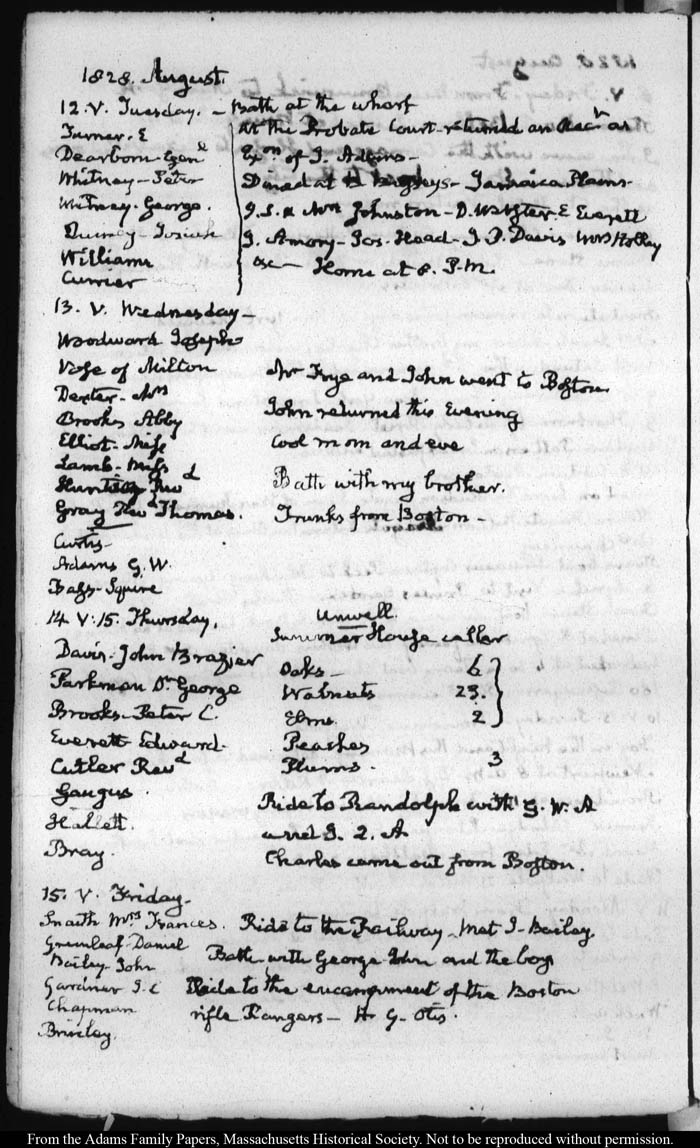 1828. August.
12. V. Tuesday. - Bath at the wharf
Turner. E
At the Probate Court - returned an Acct as
Dearborn Genl
Exn of J. Adams -
Whitney - Peter
Dined at Bayleys - Jamaica Plains
Whitney. George.
J. S. Johnston - D. Webster. E Everett
Quincy - Josiah
T. Amory - Jos. Head - J. P. Davis Holley
Williams
&c - Home at 8. P.M.
Currier
13. V. Wednesday -
Woodward Joseph
Vose of Milton
Mr Frye and John went to Boston
Dexter - Mrs
John returned this Evening
Brooks Abby
Cool morn and eve
Elliot - Miss
Lamb - Miss
Bath with my brother.
Gray Revd Thomas.
Trunks from Boston -
Curtis -
Adams G. W.
Bass - Squire
14. V: 15. Thursday.
Unwell.
Summer House cellar
Davis. John Brazier
Oaks - 6
Parkman Dr George
Walnuts 23.
Brooks - Peter C.
Elms. 2
Everett Edward
Peaches
Cutler Revd
Plums. 3
Gaugus.
Ride to Randolph with G. W. A
Hallett.
and J. Q. A
Bray.
Charles came out from Boston.
15. V. Friday -
Smith Mrs Frances. Ride to the Railway - Met J - Bailey
Greenleaf - Daniel
Bath with George John and the boys
Bailey - John
Gardner J. C Ride to the encampment of the Boston
Chapman
rifle Rangers - H. G. Otis.
Brinley.
From the Adams Family Papers, Massachusetts Historical Society. Not to be reproduced without permission.